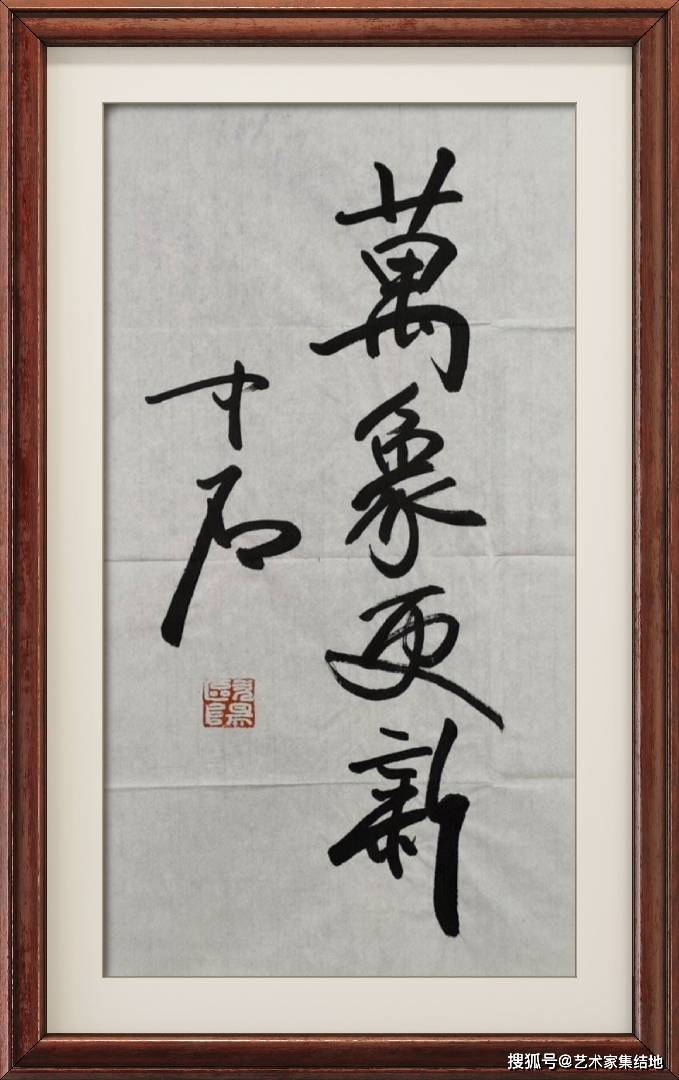 萬象更新
中石
搜狐号@艺术家集结地